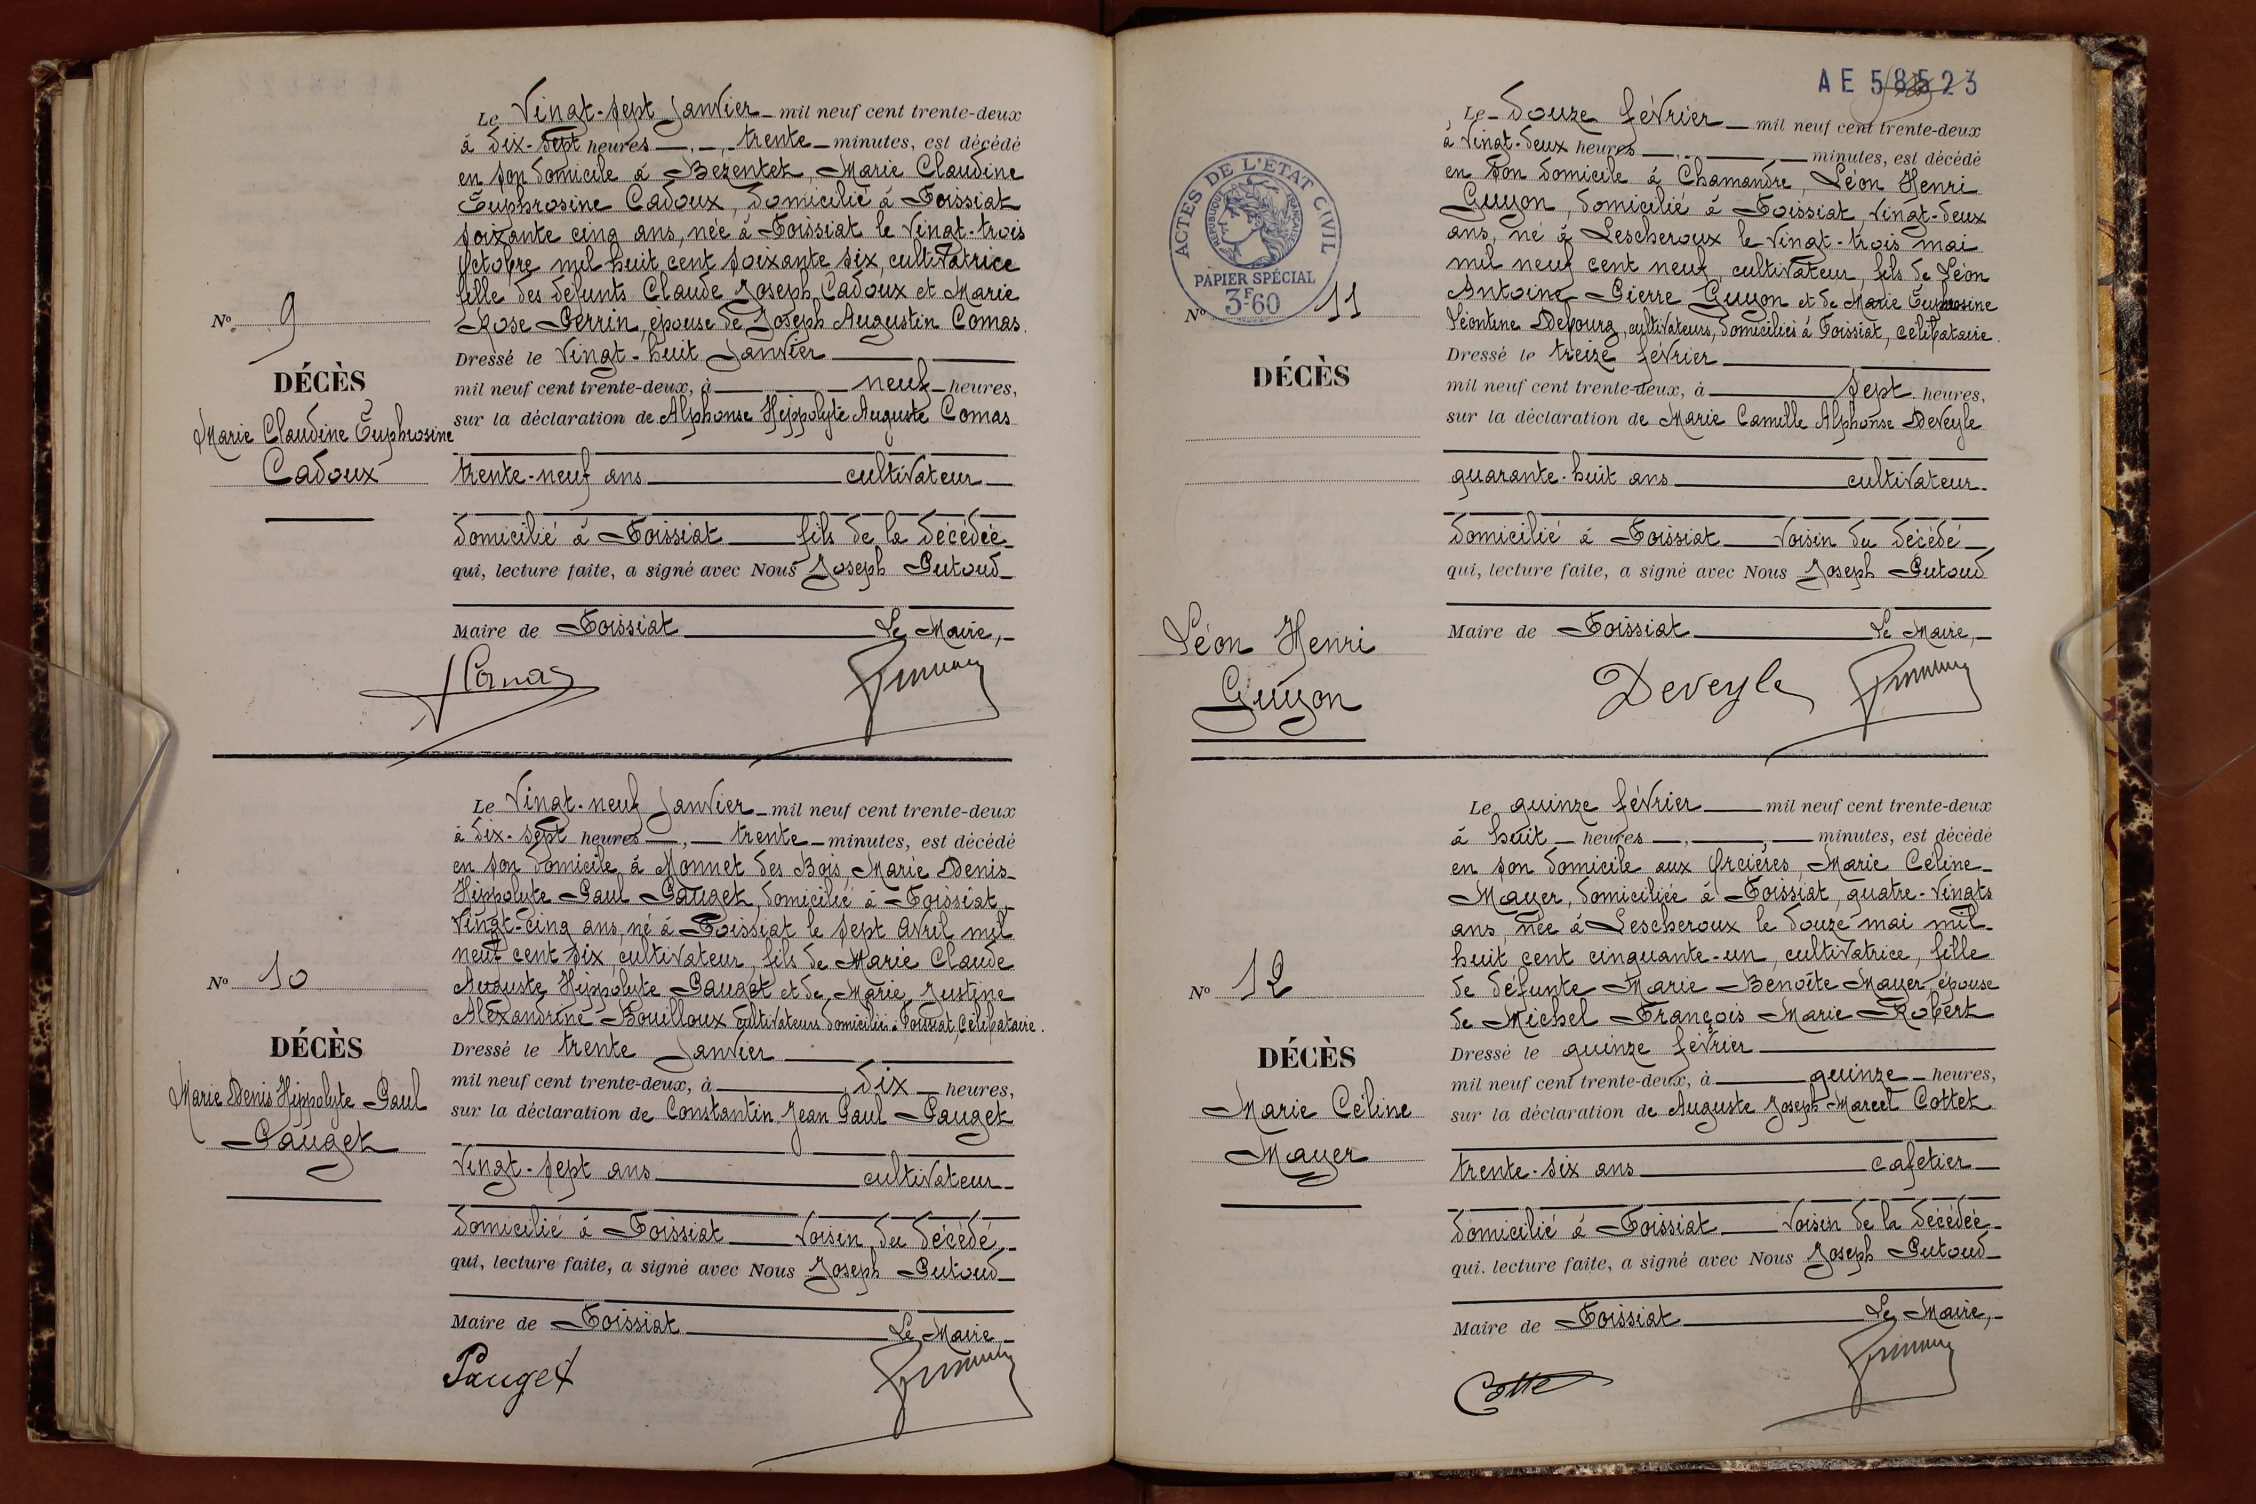 Le Vingt-sept Janvier mil neuf cent trente-deux
à dix-sept heures trente minutes, est décédé
en son domicile à Bezentet, Marie Claudine
Euphrosine Cadoux, domicilié à Foissiat
soixante cinq ans, née à Foissiat le vingt-trois
Octobre mil huit cent soixante six, cultivatrice
fille des défunts Claude Joseph Cadoux et Marie
Rose Perrin, épouse de Joseph Augustin Comas.
Nº 9
Dressé le Vingt-huit Janvier
DÉCÈS
mil neuf cent trente-deux, à neuf heures,
sur la déclaration de Alphonse Hippolyte Auguste Comas
Marie Claudine Euphrosine
Cadoux
trente-neuf ans cultivateur
domicilié à Foissiat fils de la décédée
qui, lecture faite, a signé avec Nous Joseph Putoud
Maire de Foissiat Le Maire,
Comas
Le Vingt-neuf Janvier mil neuf cent trente-deux
à dix-sept heures trente minutes, est décédé
en son domicile à Monnet des Bois, Marie Denis
Hippolyte Paul Pauget, domicilié à Foissiat,
Vingt-cinq ans, né à Foissiat le sept Avril mil
neuf cent six, cultivateur, fils de Marie Claude
Auguste Hippolyte Pauget et de Marie Justine
Alexandrine Bouilloux cultivateurs domiciliés à Foissiat, célibataire.
Nº 10
Dressé le trente Janvier
DÉCÈS
mil neuf cent trente-deux, à dix heures,
sur la déclaration de Constantin Jean Paul Pauget
Marie Denis Hippolyte Paul
Pauget
Vingt-sept ans cultivateur
domicilié à Foissiat Voisin du décédé
qui, lecture faite, a signé avec Nous Joseph Putoud
Maire de Foissiat Le Maire
Pauget
AE 58523
ACTES DE L'ETAT CIVIL
REPUBLIQUE FRANÇAISE
PAPIER SPÉCIAL
3F60
Le douze février mil neuf cent trente-deux
à vingt-deux heures minutes, est décédé
en son domicile à Chamandre, Léon Henri
Guyon, domicilié à Foissiat, vingt-deux
ans, né à Lescheroux le vingt-trois mai
mil neuf cent neuf, cultivateur, fils de Léon
Antoine Pierre Guyon et de Marie Euphrosine
Léontine Defourg, cultivateurs, domiciliés à Foissiat, célibataire.
Nº 11
Dressé le treize février
DÉCÈS
mil neuf cent trente-deux, à sept heures,
sur la déclaration de Marie Camille Alphonse Deveyle
quarante-huit ans cultivateur.
domicilié à Foissiat Voisin du décédé
qui, lecture faite, a signé avec Nous Joseph Putoud
Maire de Foissiat Le Maire,
Léon Henri
Guyon
Deveyle
Le quinze février mil neuf cent trente-deux
à huit heures minutes, est décédé
en son domicile aux Orcières, Marie Céline
Mayer, domiciliée à Foissiat, quatre-vingts
ans, née à Lescheroux le douze mai mil
huit cent cinquante-un, cultivatrice, fille
de défunte Marie Benoîte Mayer, épouse
de Michel François Marie Robert
Nº 12
Dressé le quinze février
DÉCÈS
mil neuf cent trente-deux, à quinze heures,
sur la déclaration de Auguste Joseph Marcel Cottet
Marie Céline
Mayer
trente-six ans cafetier
domicilié à Foissiat Voisin de la décédée
qui, lecture faite, a signé avec Nous Joseph Putoud
Maire de Foissiat Le Maire,